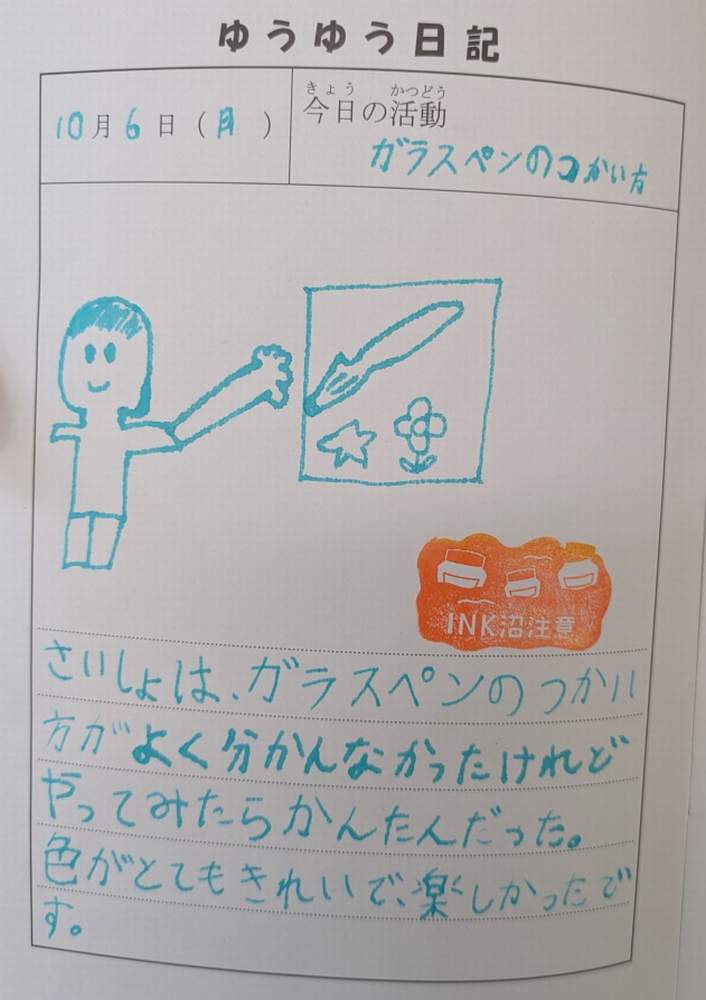 ゆうゆう日記
10月6日(月)
きょう かつどう
今日の活動
ガラスペンのつかい方
INK沼注意
さいしょは、ガラスペンのつかい
方がよく分かんなかったけれど
やってみたらかんたんだった。
色がとてもきれいで、楽しかったで
す。